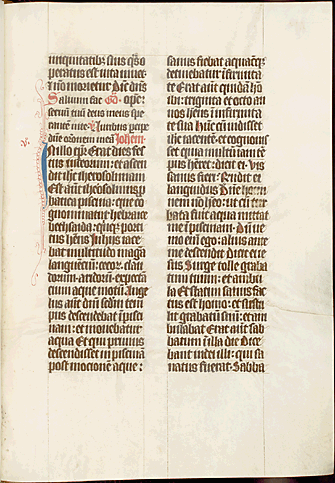 iniquitatibus suis quas o
peratus est vita vivet
et non morietur Dicit dns
Saluum fac ope:
seruum tuū deus meus spe
rantem in te Auribus percipe
dne oronem meā Johem
In illo tpr Erat dies fes
tus iudeorum: et ascen
dit ihc iherosolimam
Est aut iherosolimis p
batica piscina: que co
gnominatur hebraice
bethsaida: quinq porti
cus hens In hiis iace
bat multitudo magna
languenciū: cecor. claud
dorum. aridorum. expectā
cium aque motū. Ange
lus aut dni scdm tem
pus descendebat in pisci
nam: et mouebatur
aqua Et qui primus
descendisset in piscinā
post mocionem aque:
sanus fiebat a quacūq
detinebatur infirmita
te Erat aut quidā ho
ibi: triginta et octo an
nos hens in infirmita
te sua Hūc cū vidisset
ihc iacente: et cognouis
set quia multum iam te
pus heret: dicit ei. Vis
sanus fieri: Rndit ei
languidus Dne homi
nem no heo: ut cū tur
bata fuit aqua mittat
me in piscinam. Dum ve
nio eni ego: alius ante
me descendit Dicit ei ih
sus Surge tolle graba
tum tuum: et ambu
la Et statim sanus fac
tus est homo: et sustu
lit grabatū suū: et am
bulabat Erat aut sab
batum in illa die Dice
bant iudei illi: qui sa
natus fuerat. Sabba